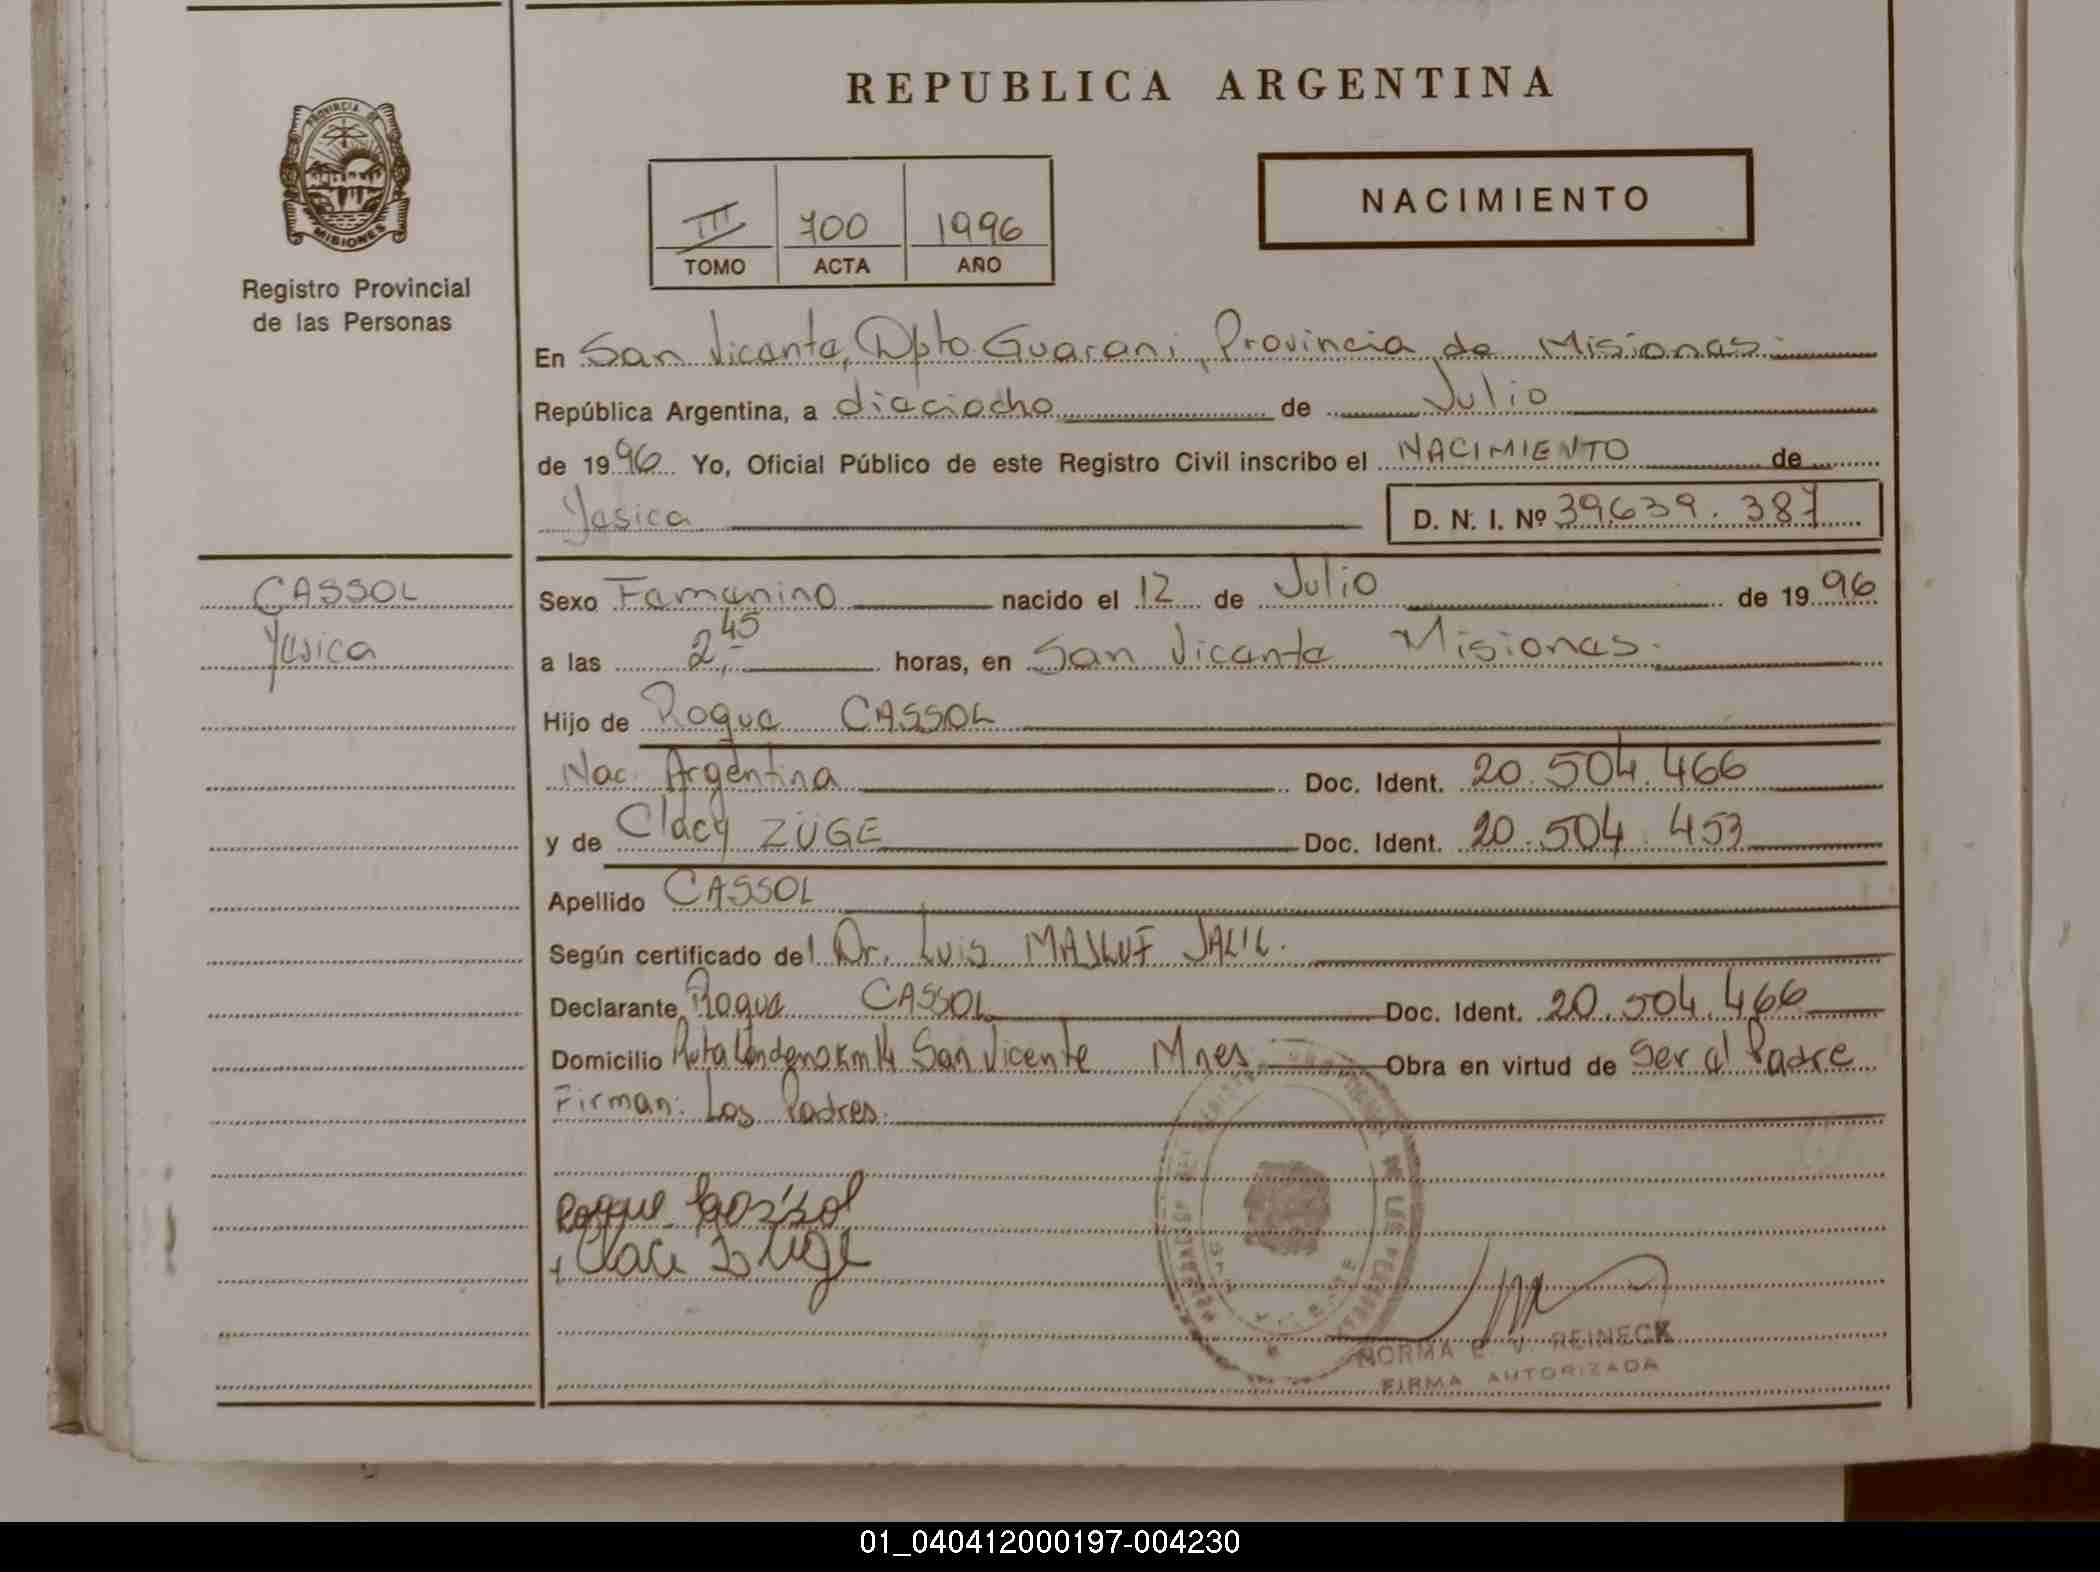 REPUBLICA ARGENTINA
PROVINCIA DE
MISIONES
Registro Provincial
de las Personas
III 700 1996
TOMO ACTA AÑO
NACIMIENTO
En San Vicente, Dpto Guarani, Provincia de Misiones.
República Argentina, a dieciocho de Julio
de 1996 Yo, Oficial Público de este Registro Civil inscribo el NACIMIENTO de
Yesica D. N. I. Nº 39.639.387
CASSOL
Yesica
Sexo Femenino nacido el 12 de Julio de 1996
a las 2,45 horas, en San Vicente Misiones.
Hijo de Roque CASSOL
Nac. Argentina Doc. Ident. 20.504.466
y de Clacy ZÜGE Doc. Ident. 20.504.453
Apellido CASSOL
Según certificado del Dr. Luis MASLUF JALIL.
Declarante Roque CASSOL Doc. Ident. 20.504.466
Domicilio Ruta Km 14 San Vicente Mnes Obra en virtud de Ser el Padre
Firman: Los Padres.
Roque
NORMA E. V. REINECK
FIRMA AUTORIZADA
01_040412000197-004230